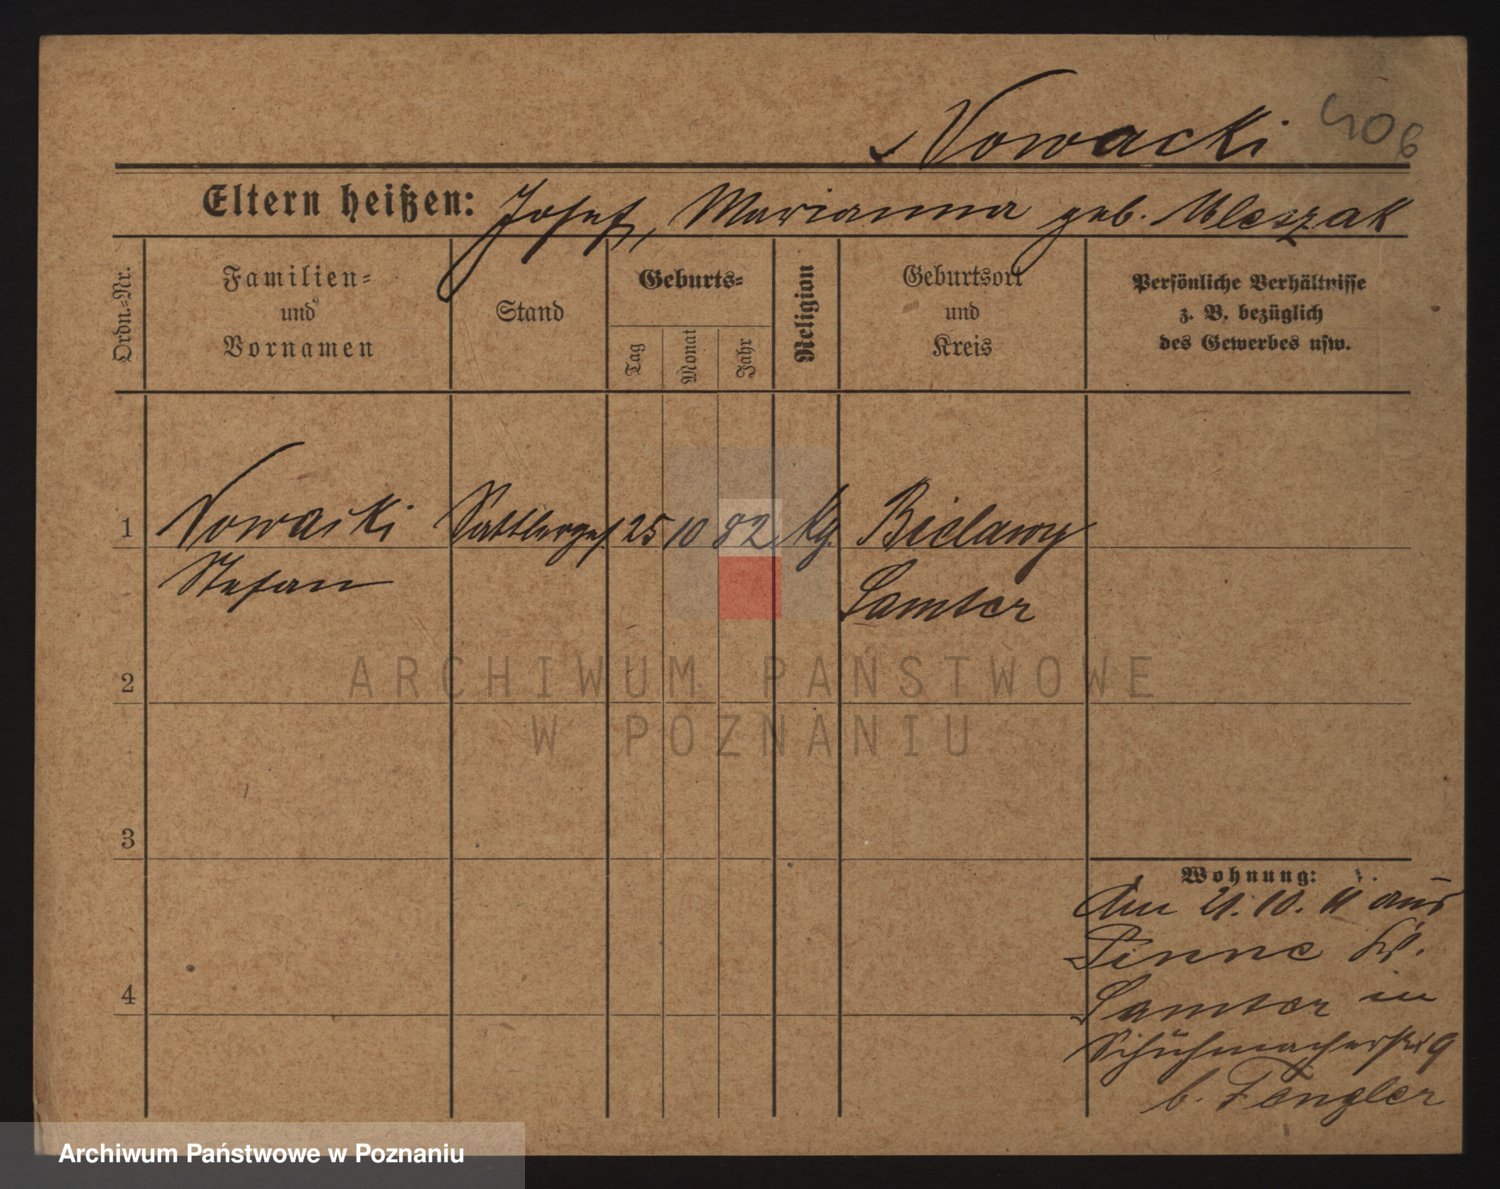 Nowacki 406
Eltern heißen: Josef, Marianna geb.
Ordn.-Nr.
Familien-
und
Vornamen
Stand
Geburts-
Tag
Monat
Jahr
Religion
Geburtsort
und
Kreis
Persönliche Verhältnisse
z. B. bezüglich
des Gewerbes usw.
1 Nowacki Sattlerges 25 10 82 Bielawy
Stefan Samter
2
ARCHIWUM PAŃSTWOWE
W POZNANIU
3
Wohnung:
Am 21. 10. 11 aus
Pinne Kr.
Samter in
Schuhmacherstr 9
b. Fengler
4
Archiwum Państwowe w Poznaniu